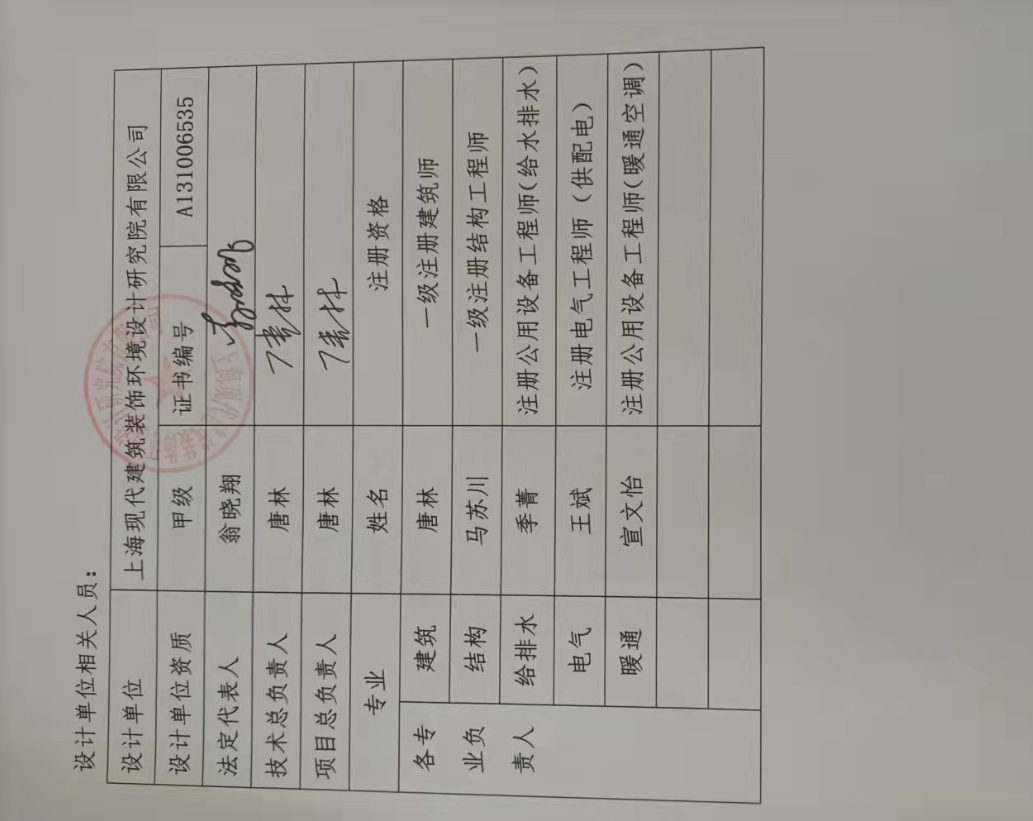 设计单位相关人员：
设计单位 上海现代建筑装饰环境设计研究院有限公司
设计单位资质 甲级 证书编号 A131006535
法定代表人 翁晓翔
技术总负责人 唐林
项目总负责人 唐林
专业 姓名 注册资格
各专 建筑 唐林 一级注册建筑师
业负 结构 马苏川 一级注册结构工程师
责人 给排水 季菁 注册公用设备工程师(给水排水)
电气 王斌 注册电气工程师（供配电）
暖通 宣文怡 注册公用设备工程师(暖通空调)